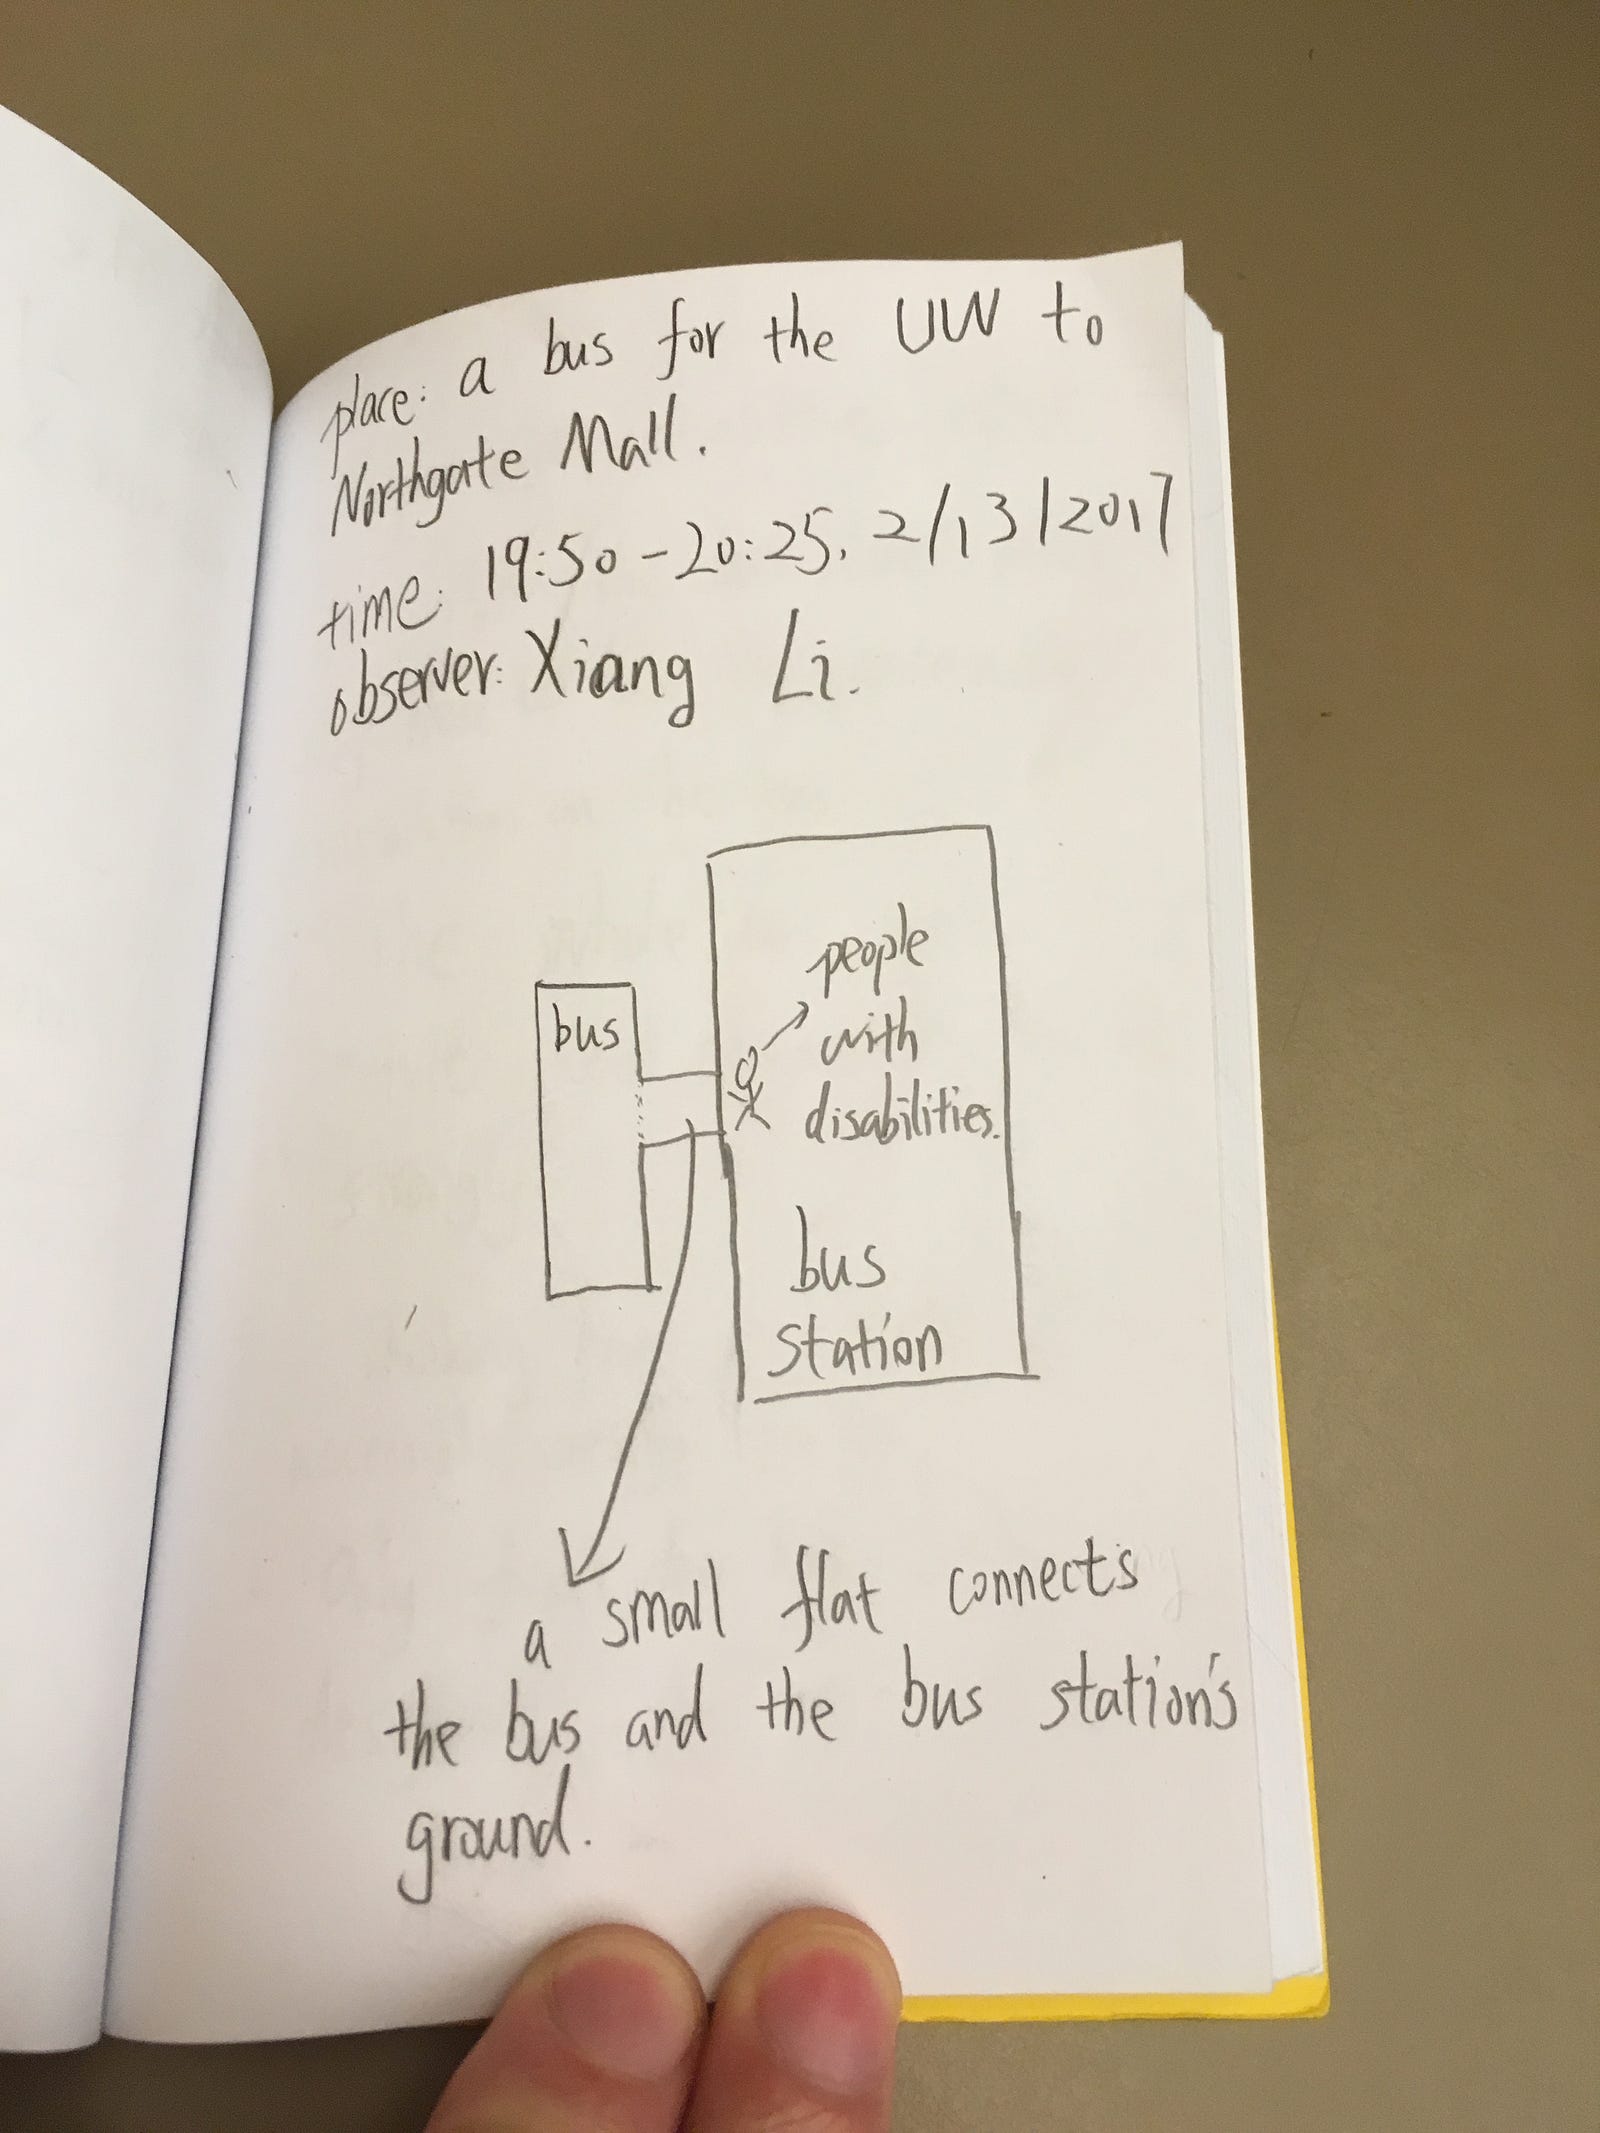 place: a bus for the UW to
Northgate Mall.
time: 19:50-20:25, 2/13/2017
observer: Xiang Li.
people
with
disabilities.
bus
bus
station
a small flat connects
the bus and the bus station's
ground.